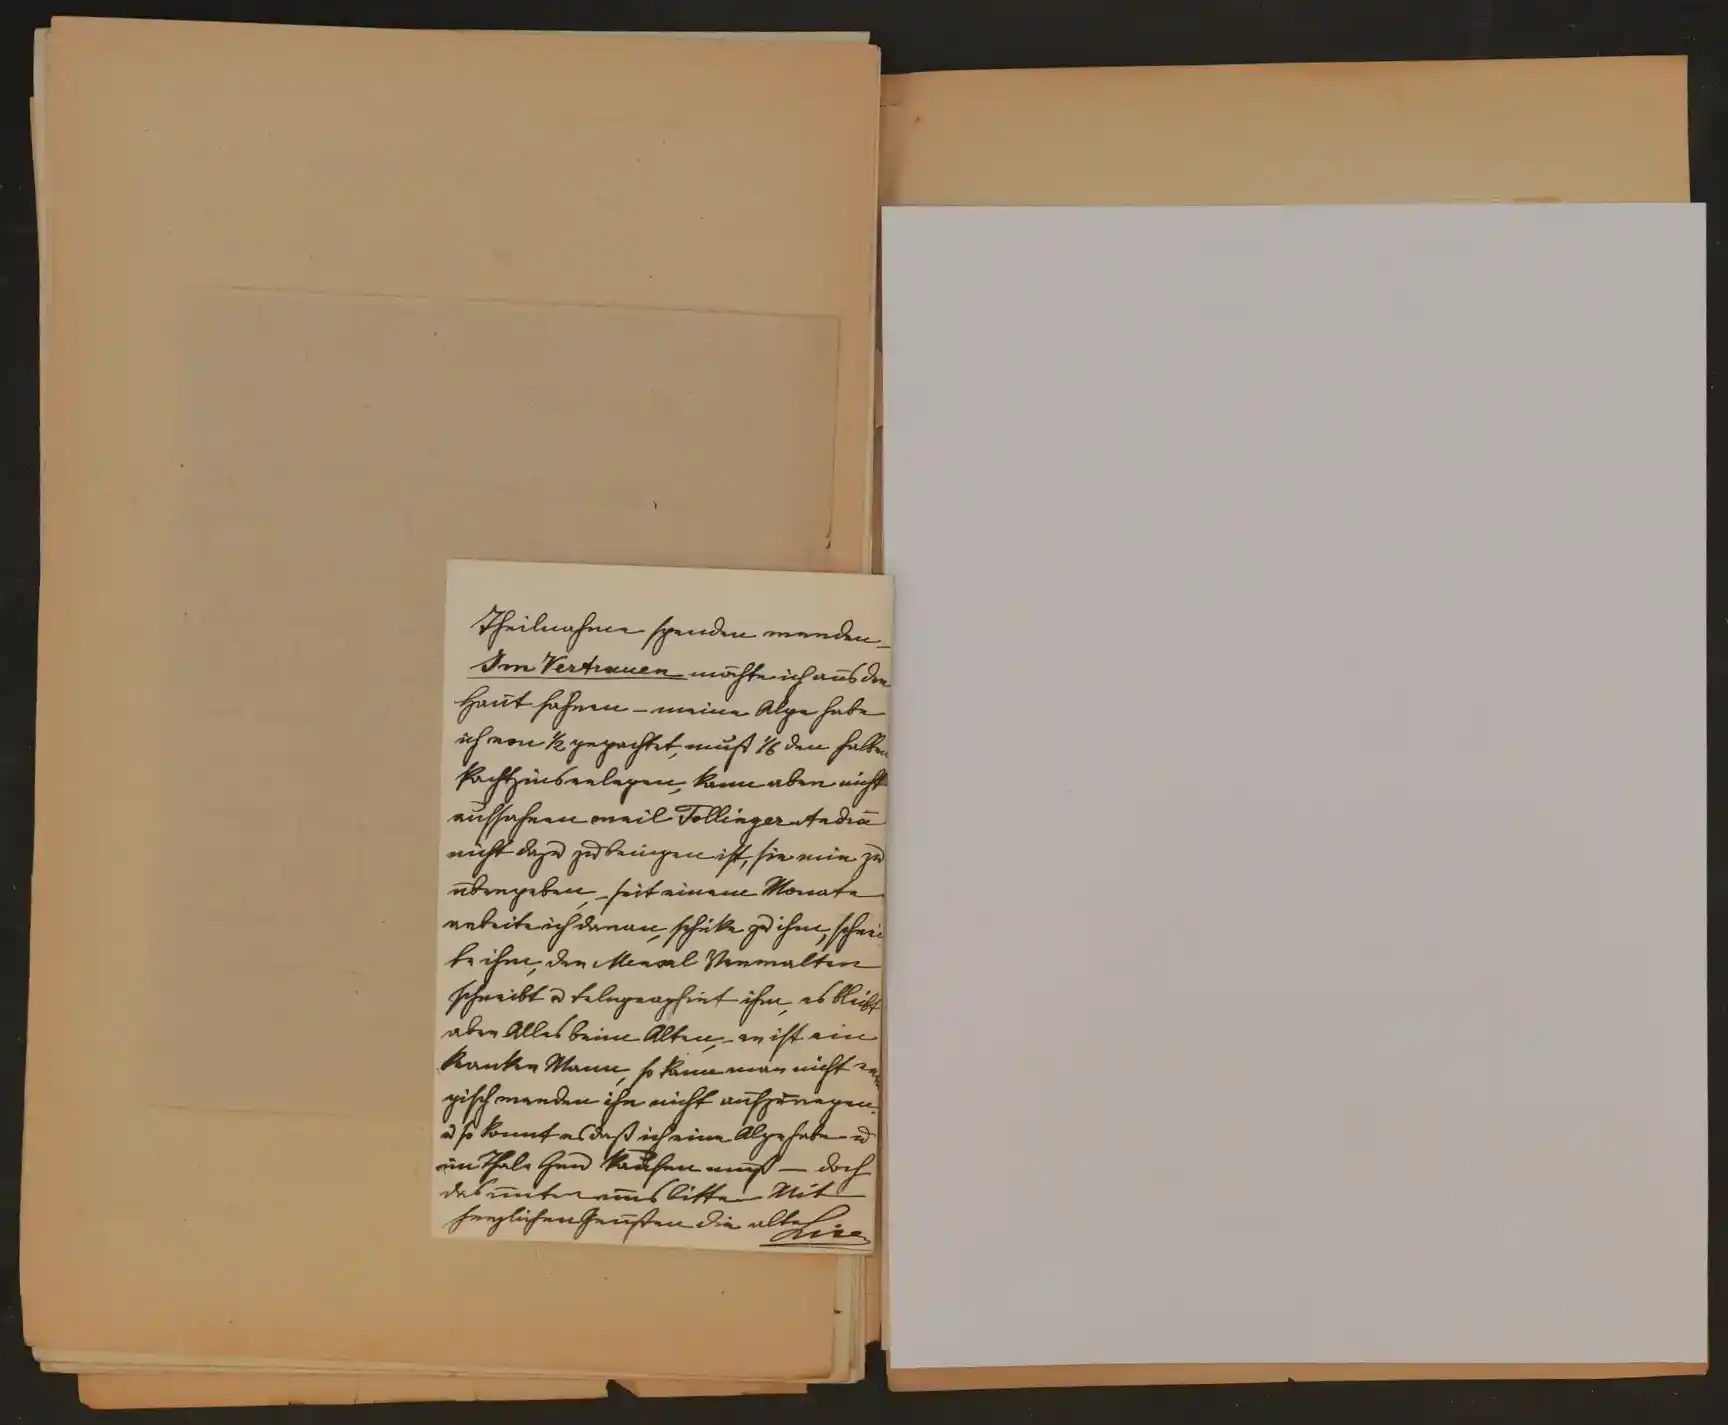 Theilnahme spenden werden –
Im Vertrauen möchte ich aus der
Haut fahren – meine Alpe habe
ich von ½ gepachtet, muß 1/6 den halben
Pachtzins erlegen, kann aber nicht
auffahren weil Follinger Andrä
nicht dazu zu bringen ist, sie mir zu
übergeben, – seit einem Monate
arbeite ich daran, schicke zu ihm, schrei
be ihm, der Mensal Verwalter
schreibt u telegraphirt ihm, es bleibt
aber Alles beim Alten, – er ist ein
kranker Mann, so kann man nicht ener
gisch werden ihn nicht aufzuregen.
u so komt es daß ich eine Alpe habe u
im Thale Heu kaufen muß – doch
das unter uns bitte Mit
herzlichen Grüßen die alte Lise